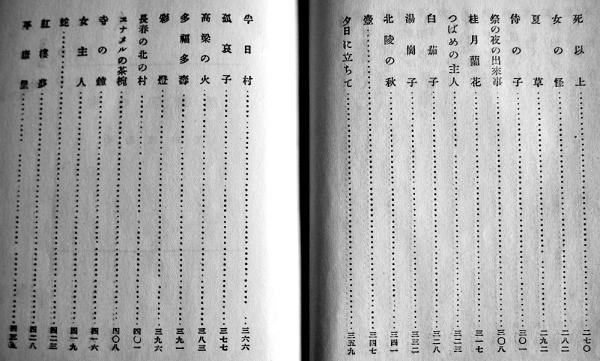 死以上……二七〇
女の怪……二八二
夏草……二九二
侍の子……三〇一
祭の夜の出来事……三〇八
桂月蘭花……三一七
つばめの主人……三二三
白茄子……三二八
湯崗子……三三二
北陵の秋……三四一
壺……三四七
夕日に立ちて……三五九
半日村……三六六
孤哀子……三七七
高粱の火……三八三
多福多壽……三九一
彩燈……三九六
長春の北の村……四〇一
エナメルの茶椀……四〇八
寺の鐘……四一六
女主人……四一九
蛇……四二三
紅樓夢……四二八